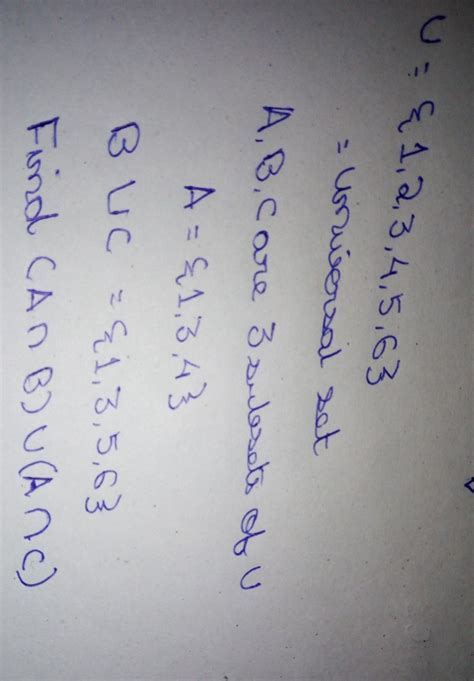 U = {1,2,3,4,5,6}
= Universal set
A, B, C are 3 subsets of U
A = {1,3,4}
B ∪ C = {1,3,5,6}
Find (A ∩ B) ∪ (A ∩ C)